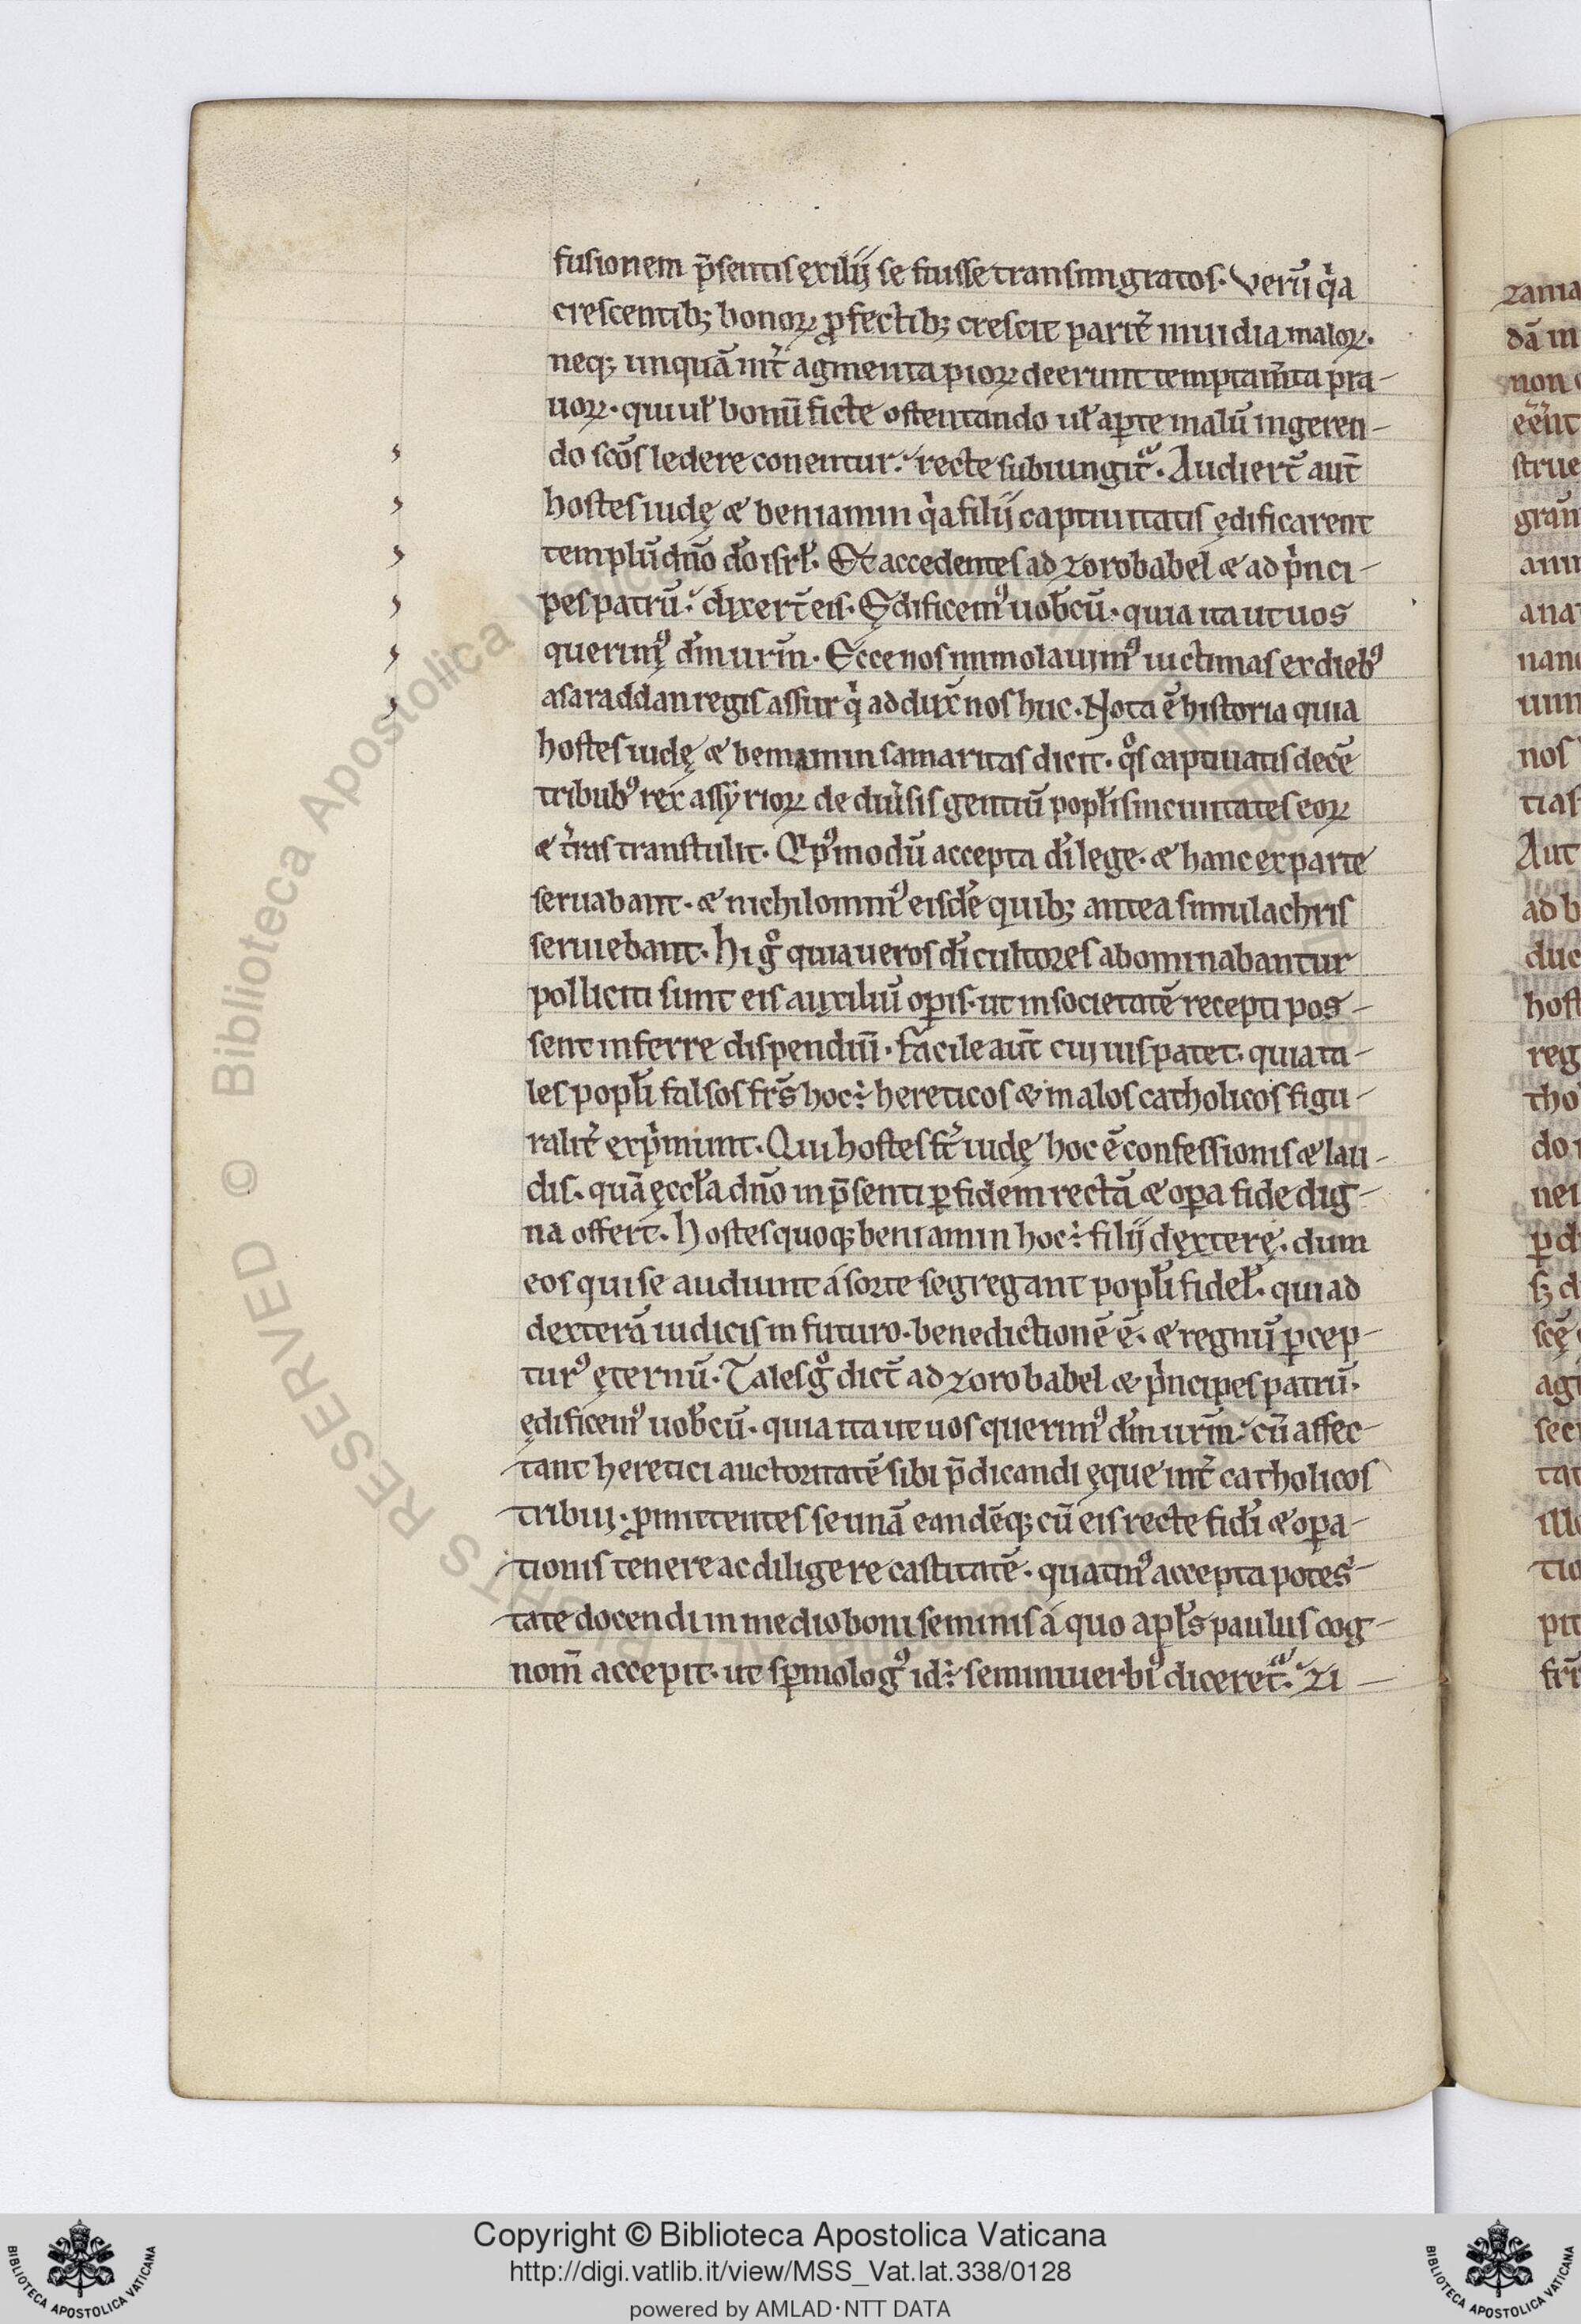 fusionem p̄sentis exilij se fuisse transmigratos. Verū qͥa
crescentibꝫ bonoꝝ ꝓfectibꝫ crescit parit̄ inuidia maloꝝ.
neqꝫ unquā int̄ agmenta pioꝝ deerunt temptam̄ta pra-
uoꝝ. qui uł bonū ficte ostentando uł aꝑte malū ingeren-
do scōs ledere conentur. recte subiungit᷑. Audiert̄ aut̄
hostes iudę & beniamin qͥa filij captiuitatis ędificarent
templū dn̄o dō isrł. Et accedentes ad zorobabel & ad pͥnci-
pes patrū. dixert̄ eis. Ędificemꝰ uob̄cū. quia ita ut uos
querimꝰ dm̄ ur̄m. Ecce nos immolauimꝰ uictimas ex diebꝰ
asaraddan regis assur qͥ addux̄ nos huc. Nota ē historia quia
hostes iudę & beniamin samaritas dicit. qͦs captiuatis decē
tribubꝰ rex assyrioꝝ de diu̓sis gentiū popłis in ciuitates eoꝝ
& t̓ras transtulit. Qui pꝰmodū accepta dī lege. & hanc ex parte
seruabant. & nichilominꝰ eisdē quibꝫ antea simulachris
seruiebant. Hi gͦ quia ueros dī cultores abominabantur
polliciti sunt eis auxiliū oꝑis. ut in societatē recepti pos-
sent inferre dispendiū. Facile aut̄ cuiuis patet. quia ta-
les popłi falsos fr̄s hoc ÷ hereticos & malos catholicos figu-
ralit̄ expͥmunt. Qui hostes st̄ iudę hoc ē confessionis & lau-
dis. quā ęccła dn̄o in p̄senti ꝑ fidem rectā & oꝑa fide dig-
na offert. Hostes quoqꝫ beniamin hoc ÷ filij dexterę. dum
eos qui se audiunt á sorte segregant popłi fideł. qui ad
dexterā iudicis in futuro. benedictionē ē. & regnū ꝑcep-
turꝰ ęternū. Tales gͦ dict̄ ad zorobabel & pͥncipes patrū.
ędificemꝰ uob̄cū. quia ita ut uos querimꝰ dm̄ ur̄m. cū affec-
tant heretici auctoritatē sibi p̄dicandi ęque int̄ catholicos
tribui. ꝓmittentes se unā eandēqꝫ cū eis recte fidī & oꝑa-
tionis tenere ac diligere castitatē. quatinꝰ accepta potes-
tate docendi in medio boni seminis á quo apłs paulus cog-
nom̄ accepit. ut sꝑmologꝰ id ÷ seminiuerbiꝰ diceret᷑. zi-
Copyright © Biblioteca Apostolica Vaticana
http://digi.vatlib.it/view/MSS_Vat.lat.338/0128
powered by AMLAD·NTT DATA